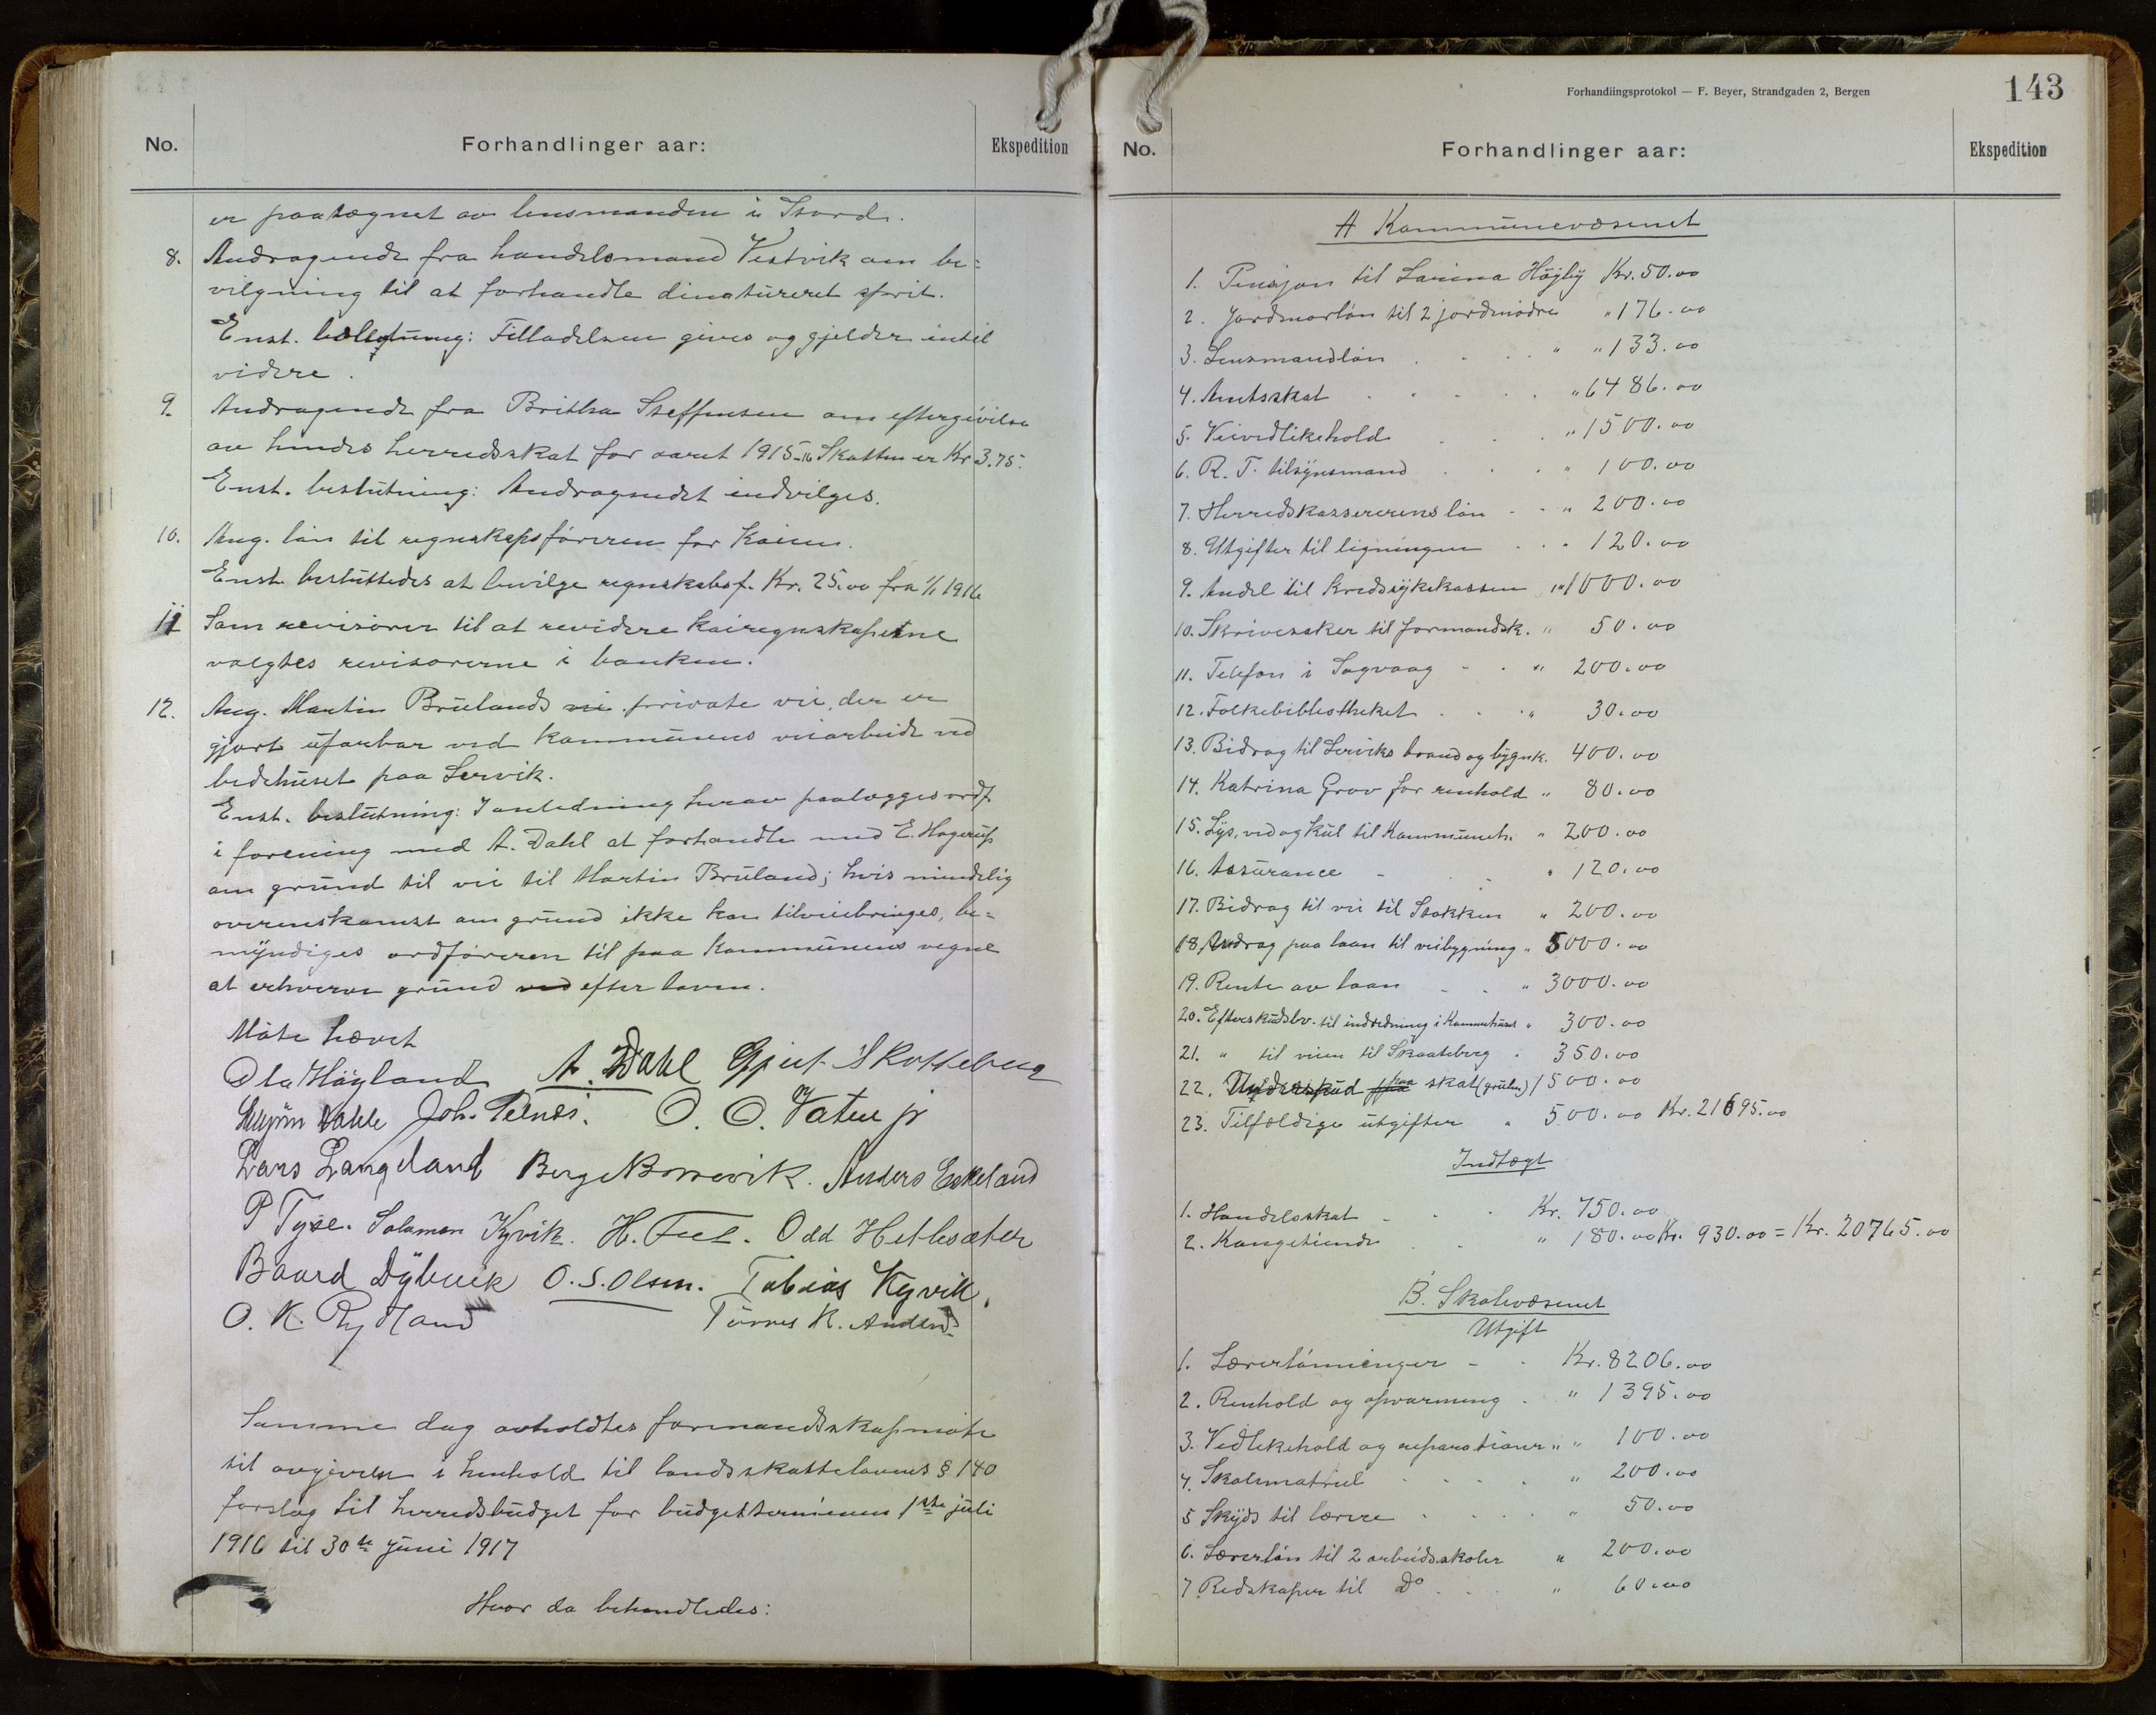 No.
Forhandlinger aar:
Ekspedition
er paategnet av lensmanden i Stord.
8. Andragende fra handelsmand Vestvik om be=
vilgning til at forhandle dinatureret sprit.
Enst. beslutning: Tilladelsen gives og gjelder intil
videre.
9. Andragende fra Britha Steffensen om eftergivilse
av hendes herredsskat for aaret 1915-16 Skatten er Kr 3.75.
Enst. beslutning: Andragendet indvilges.
10. Ang. løn til regnskapsføreren for Kaien.
Enst. besluttedes at bevilge regnskabsf. Kr. 25.00 fra 1/1 1916
11 Som revisorer til at revidere kairegnskaperne
valgtes revisorerne i banken.
12. Ang. Martin Brulands vei private vei, der er
gjort ufarbar ved kommunens veiarbeide ved
bedehuset paa Lervik.
Enst. beslutning: I anledning herav paalægges ordf.
i forening med A. Dahl at forhandle med E. Hagerup
om grund til vei til Martin Bruland; hvis mindelig
overenskomst om grund ikke kan tilveiebringes, be=
myndiges ordføreren til paa kommunens vegne
at erhverve grund ved efter loven.
Møte hævet
Ola Høyland A. Dahl Gjert Skotteberg
Dahle Joh. O. O. Vatne jr
Lars Langeland Berge Borrevik. Anders Eskeland
P Tyse. Salamon Kyvik. H. Odd Hetlesæter
Baard Dybvik O. S. Olsen. Tobias Kyvik.
O. K. Rydland Tørres K.
Samme dag avholdtes formandskapmøte
til avgivelse i henhold til landsskattelovens § 140
forslag til herredsbudget for budgetterminen 1ste juli
1916 til 30te juni 1917
Hvor da behandledes:
Forhandlingsprotokol — F. Beyer, Strandgaden 2, Bergen
143
No.
Forhandlinger aar:
Ekspedition
A Kommunevæsenet
1. Pensjon til Larina Høgby Kr. 50.00
2. Jordmorløn til 2 jordmødre " 176.00
3. Lensmandløn " " 133.00
4. Amtsskat " 6486.00
5. Veivedlikehold " 1500.00
6. R. T. tilsynsmand " 100.00
7. Herredskassererens løn " 200.00
8. Utgifter til ligningen " 120.00
9. Andel til kredssykekassen " 1000.00
10. Skrivesaker til formandsk. " 50.00
11. Telefon i Sagvaag " 200.00
12. Folkebibliotheket " 30.00
13. Bidrag til Lerviks brand og bygnk. 400.00
14. Katrina Grov for renhold " 80.00
15. Lys, ved og kul til Kommuneh. " 200.00
16. Assurance " 120.00
17. Bidrag til vei til Stokken " 200.00
18. Avdrag paa laan til veibygning " 5000.00
19. Rente av laan " 3000.00
20. Efterskudsbv. til indredning i Kommunehuset " 300.00
21. " til veien til Skaateberg " 350.00
22. Underskud paa skat (gruben) 1500.00
23. Tilfældige utgifter " 500.00 Kr. 21695.00
Indtægt
1. Handelsskat Kr. 750.00
2. Kongetiende " 180.00 Kr. 930.00 = Kr. 20765.00
B. Skolevæsenet
Utgift
1. Lærerlønninger Kr. 8206.00
2. Renhold og opvarmning " 1395.00
3. Vedlikehold og reparationer " " 100.00
4. Skolematriel " 200.00
5 Skyds til lærere " 50.00
6. Lærerløn til 2 arbeidsskoler " 200.00
7 Redskaper til Do " 60.00